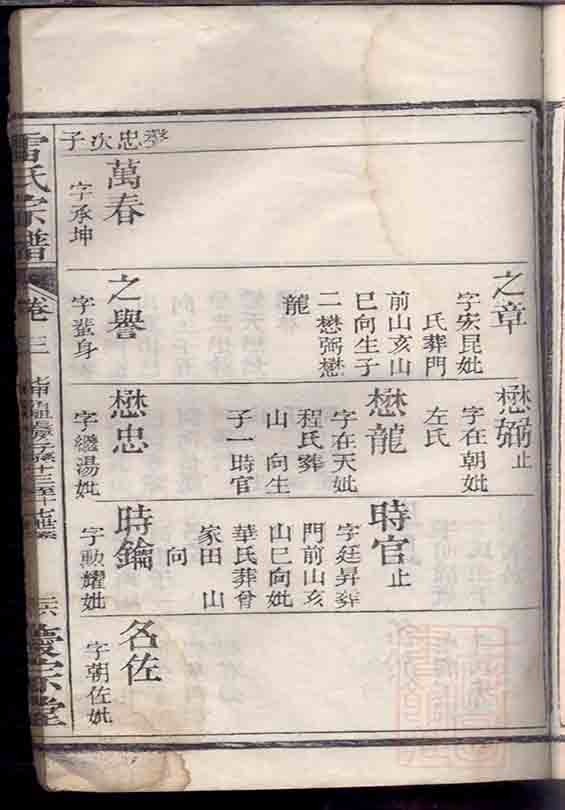 子次忠登
萬春
字承坤
之章
字宏民妣
氏葬門
前山亥山
巳向生子
二懋弼懋
龍
之譽
字蜚身
懋弼止
字在朝妣
左氏
懋龍
字在天妣
程氏葬
山　向生
子一時官
懋忠
字繼湯妣
時官止
字廷昇葬
門前山亥
山巳向妣
華氏葬曾
家田　山
向
時鑰
字勲耀妣
名佐
字朝佐妣
雷氏宗譜
卷三